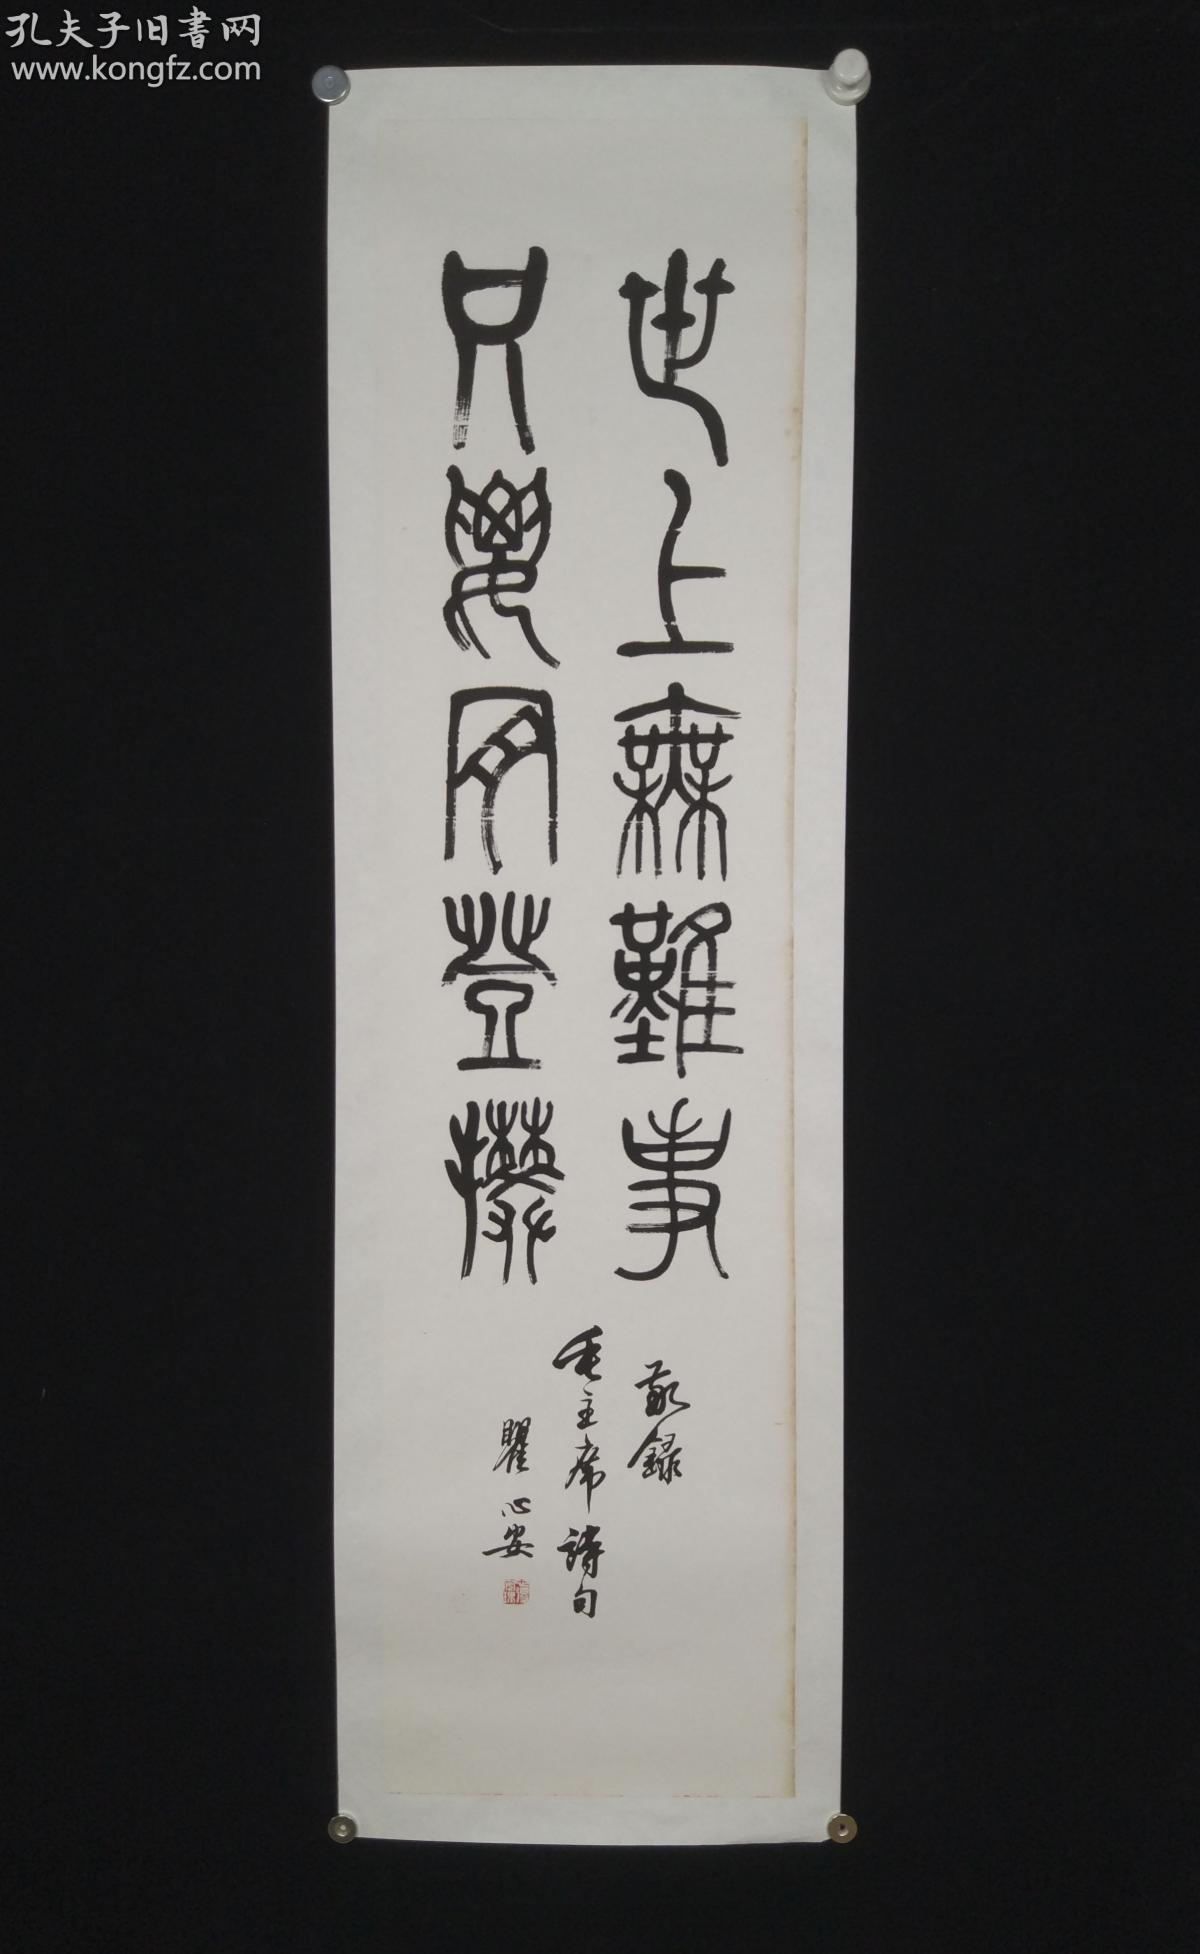 孔夫子旧書网
www.kongfz.com
世上無難事
只要肯登攀
敬錄
毛主席詩句
瞿心安